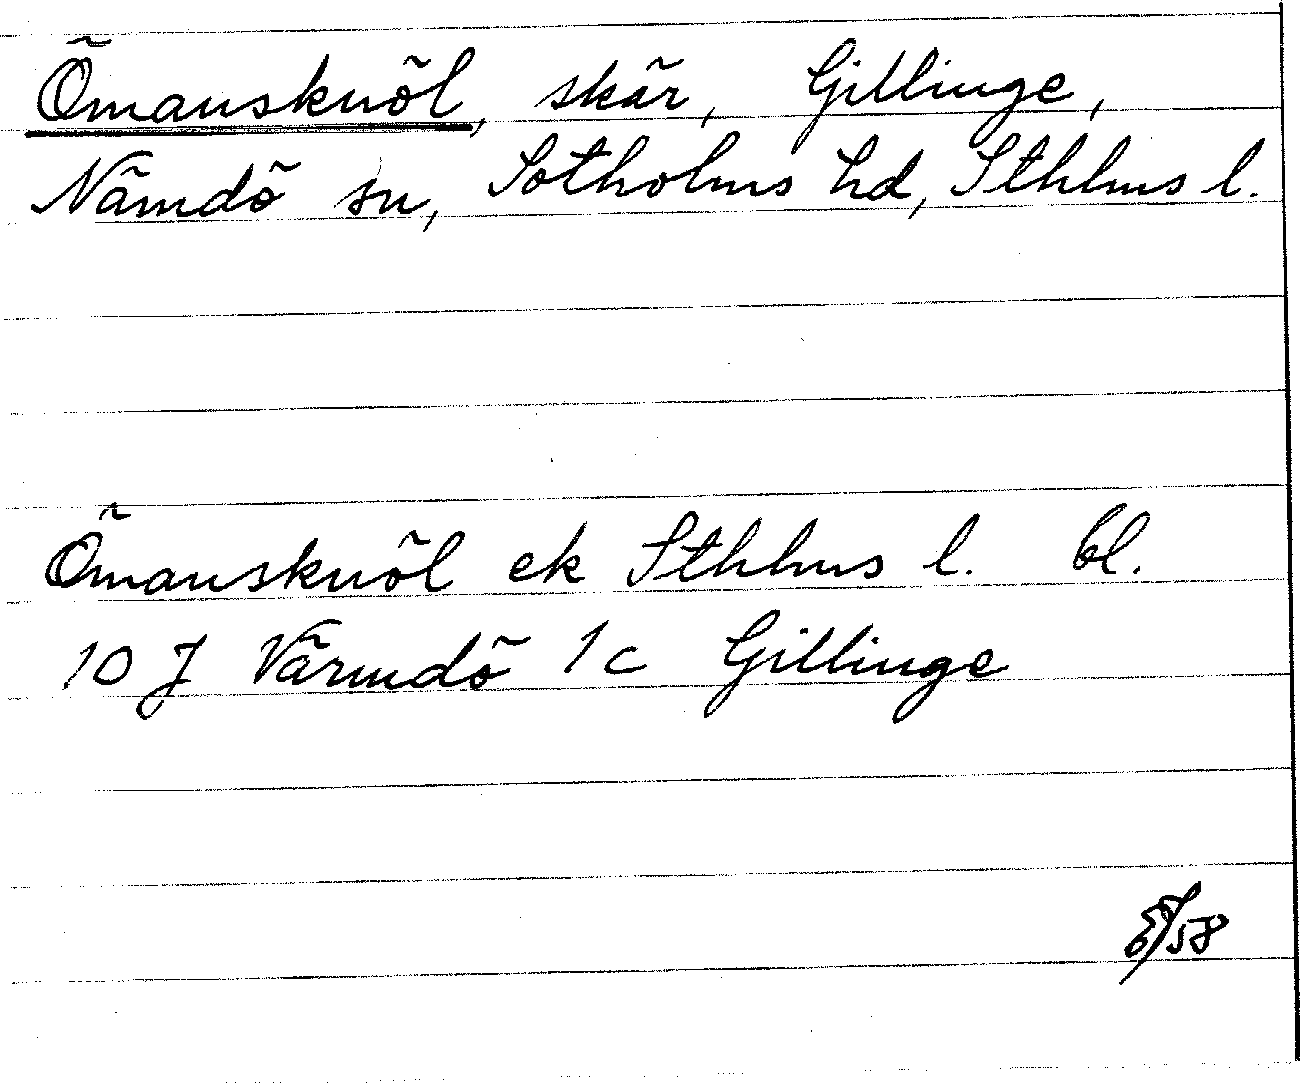 Ömansknöl, skär, Gillinge,
Nämdö sn, Sotholms hd, Sthlms l.
Ömansknöl ek Sthlms l. bl.
10 J Värmdö 1 c Gillinge
/58